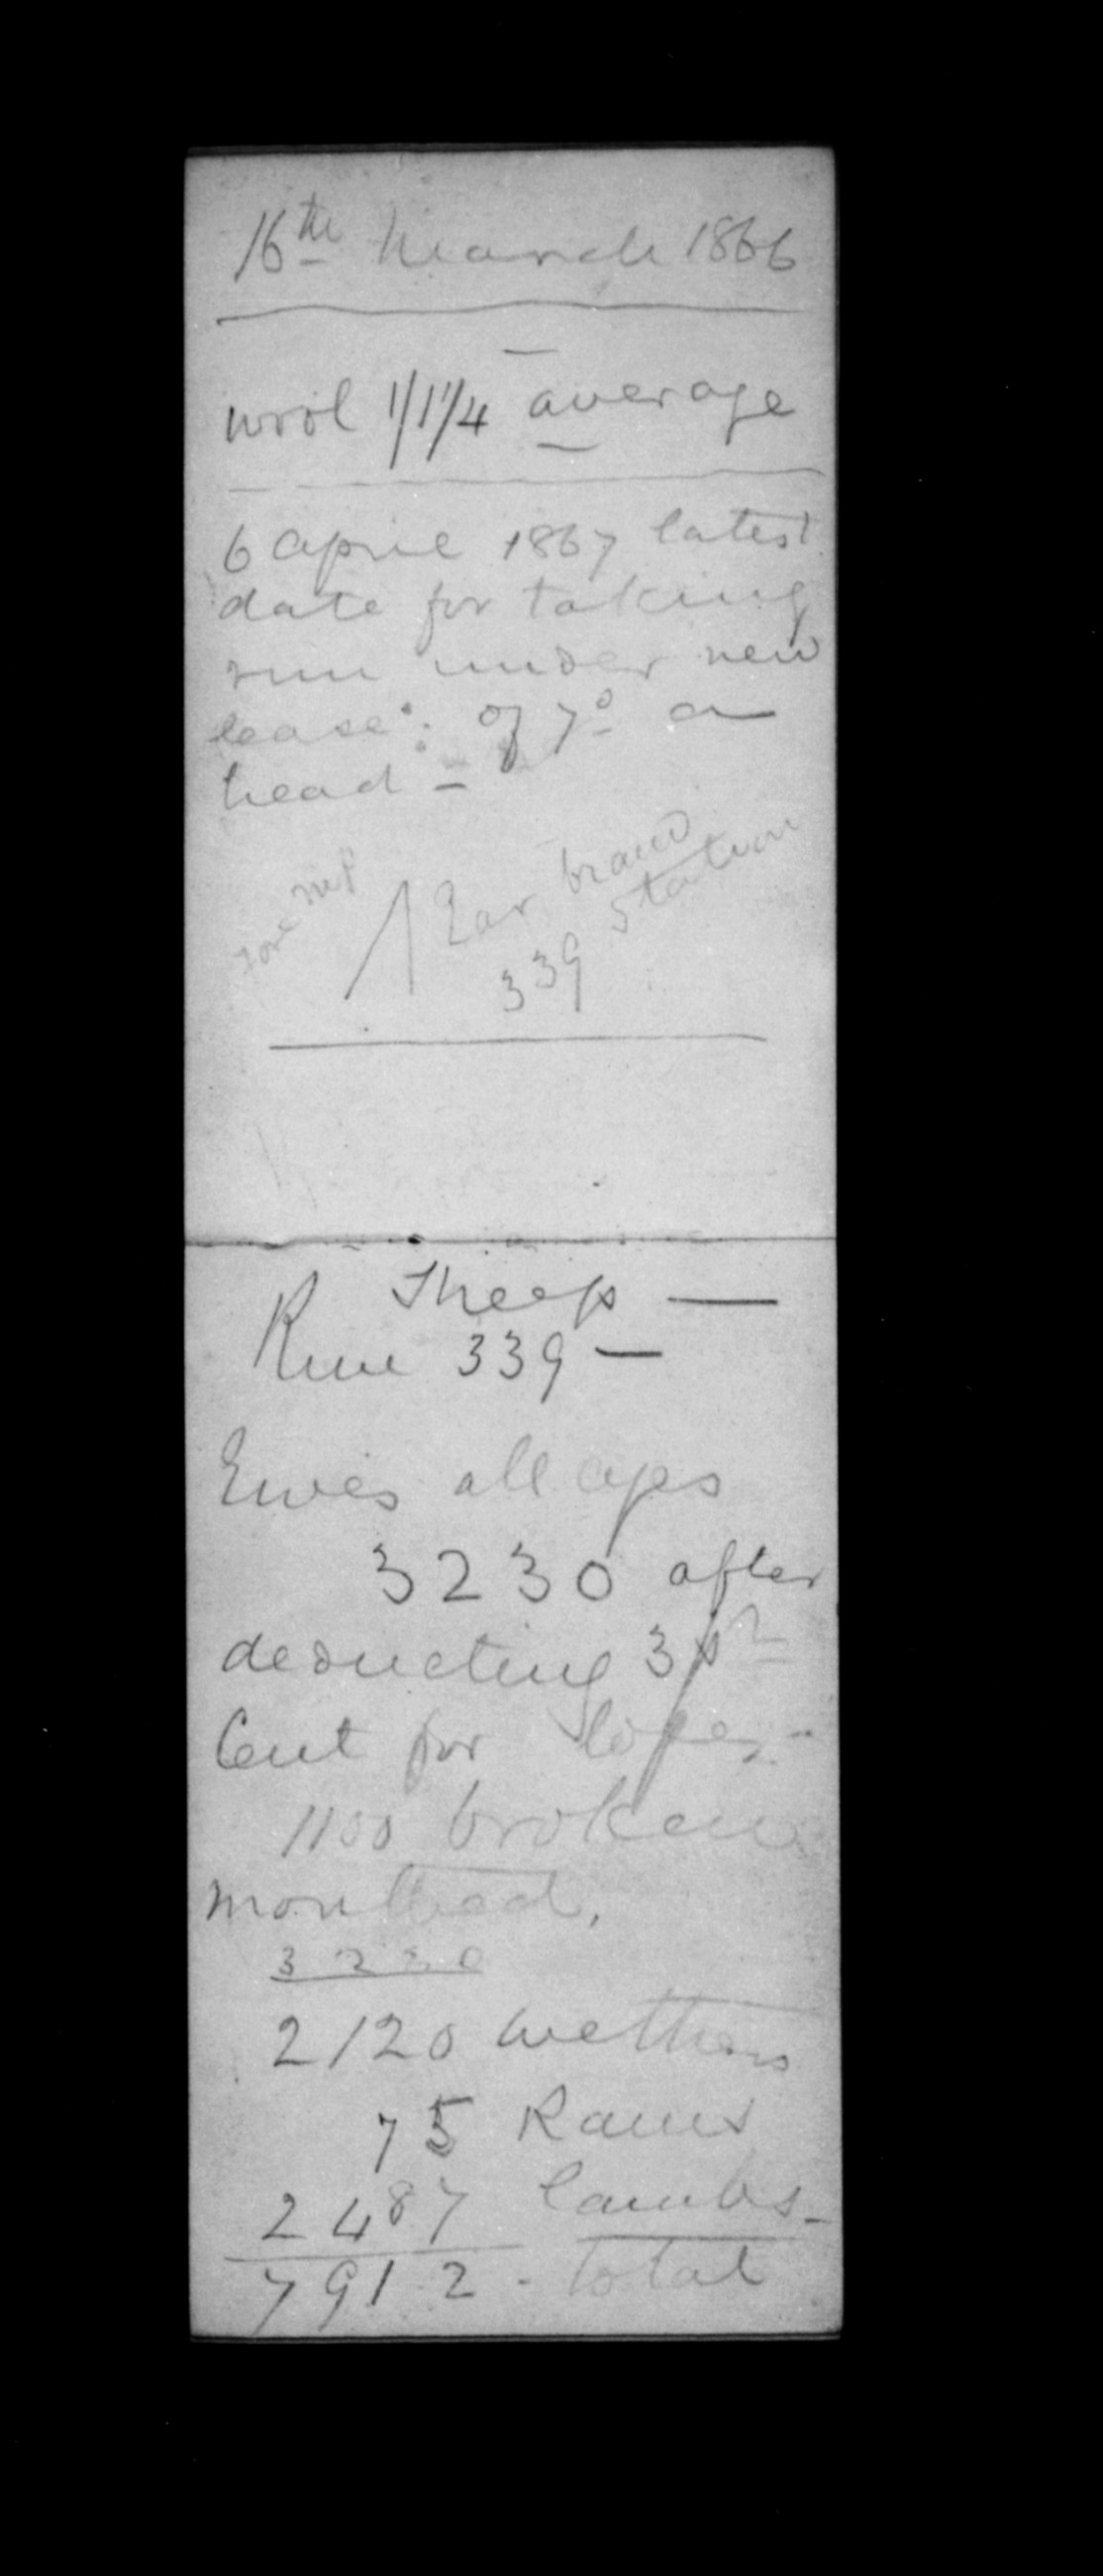 16th March 1866
wool 1/1 1/4 average
6 april 1867 latest
date for taking
run under new
lease: of 7d a
head -
Fore
Ear brand
339 Station
Sheep —
Run 339 —
Ewes all ages
3230 after
deducting 3 pr
Cent for loss -
1100 broken
mouthed.
3230
2120 wethers
75 Rams
2487 lambs -
7912 - total